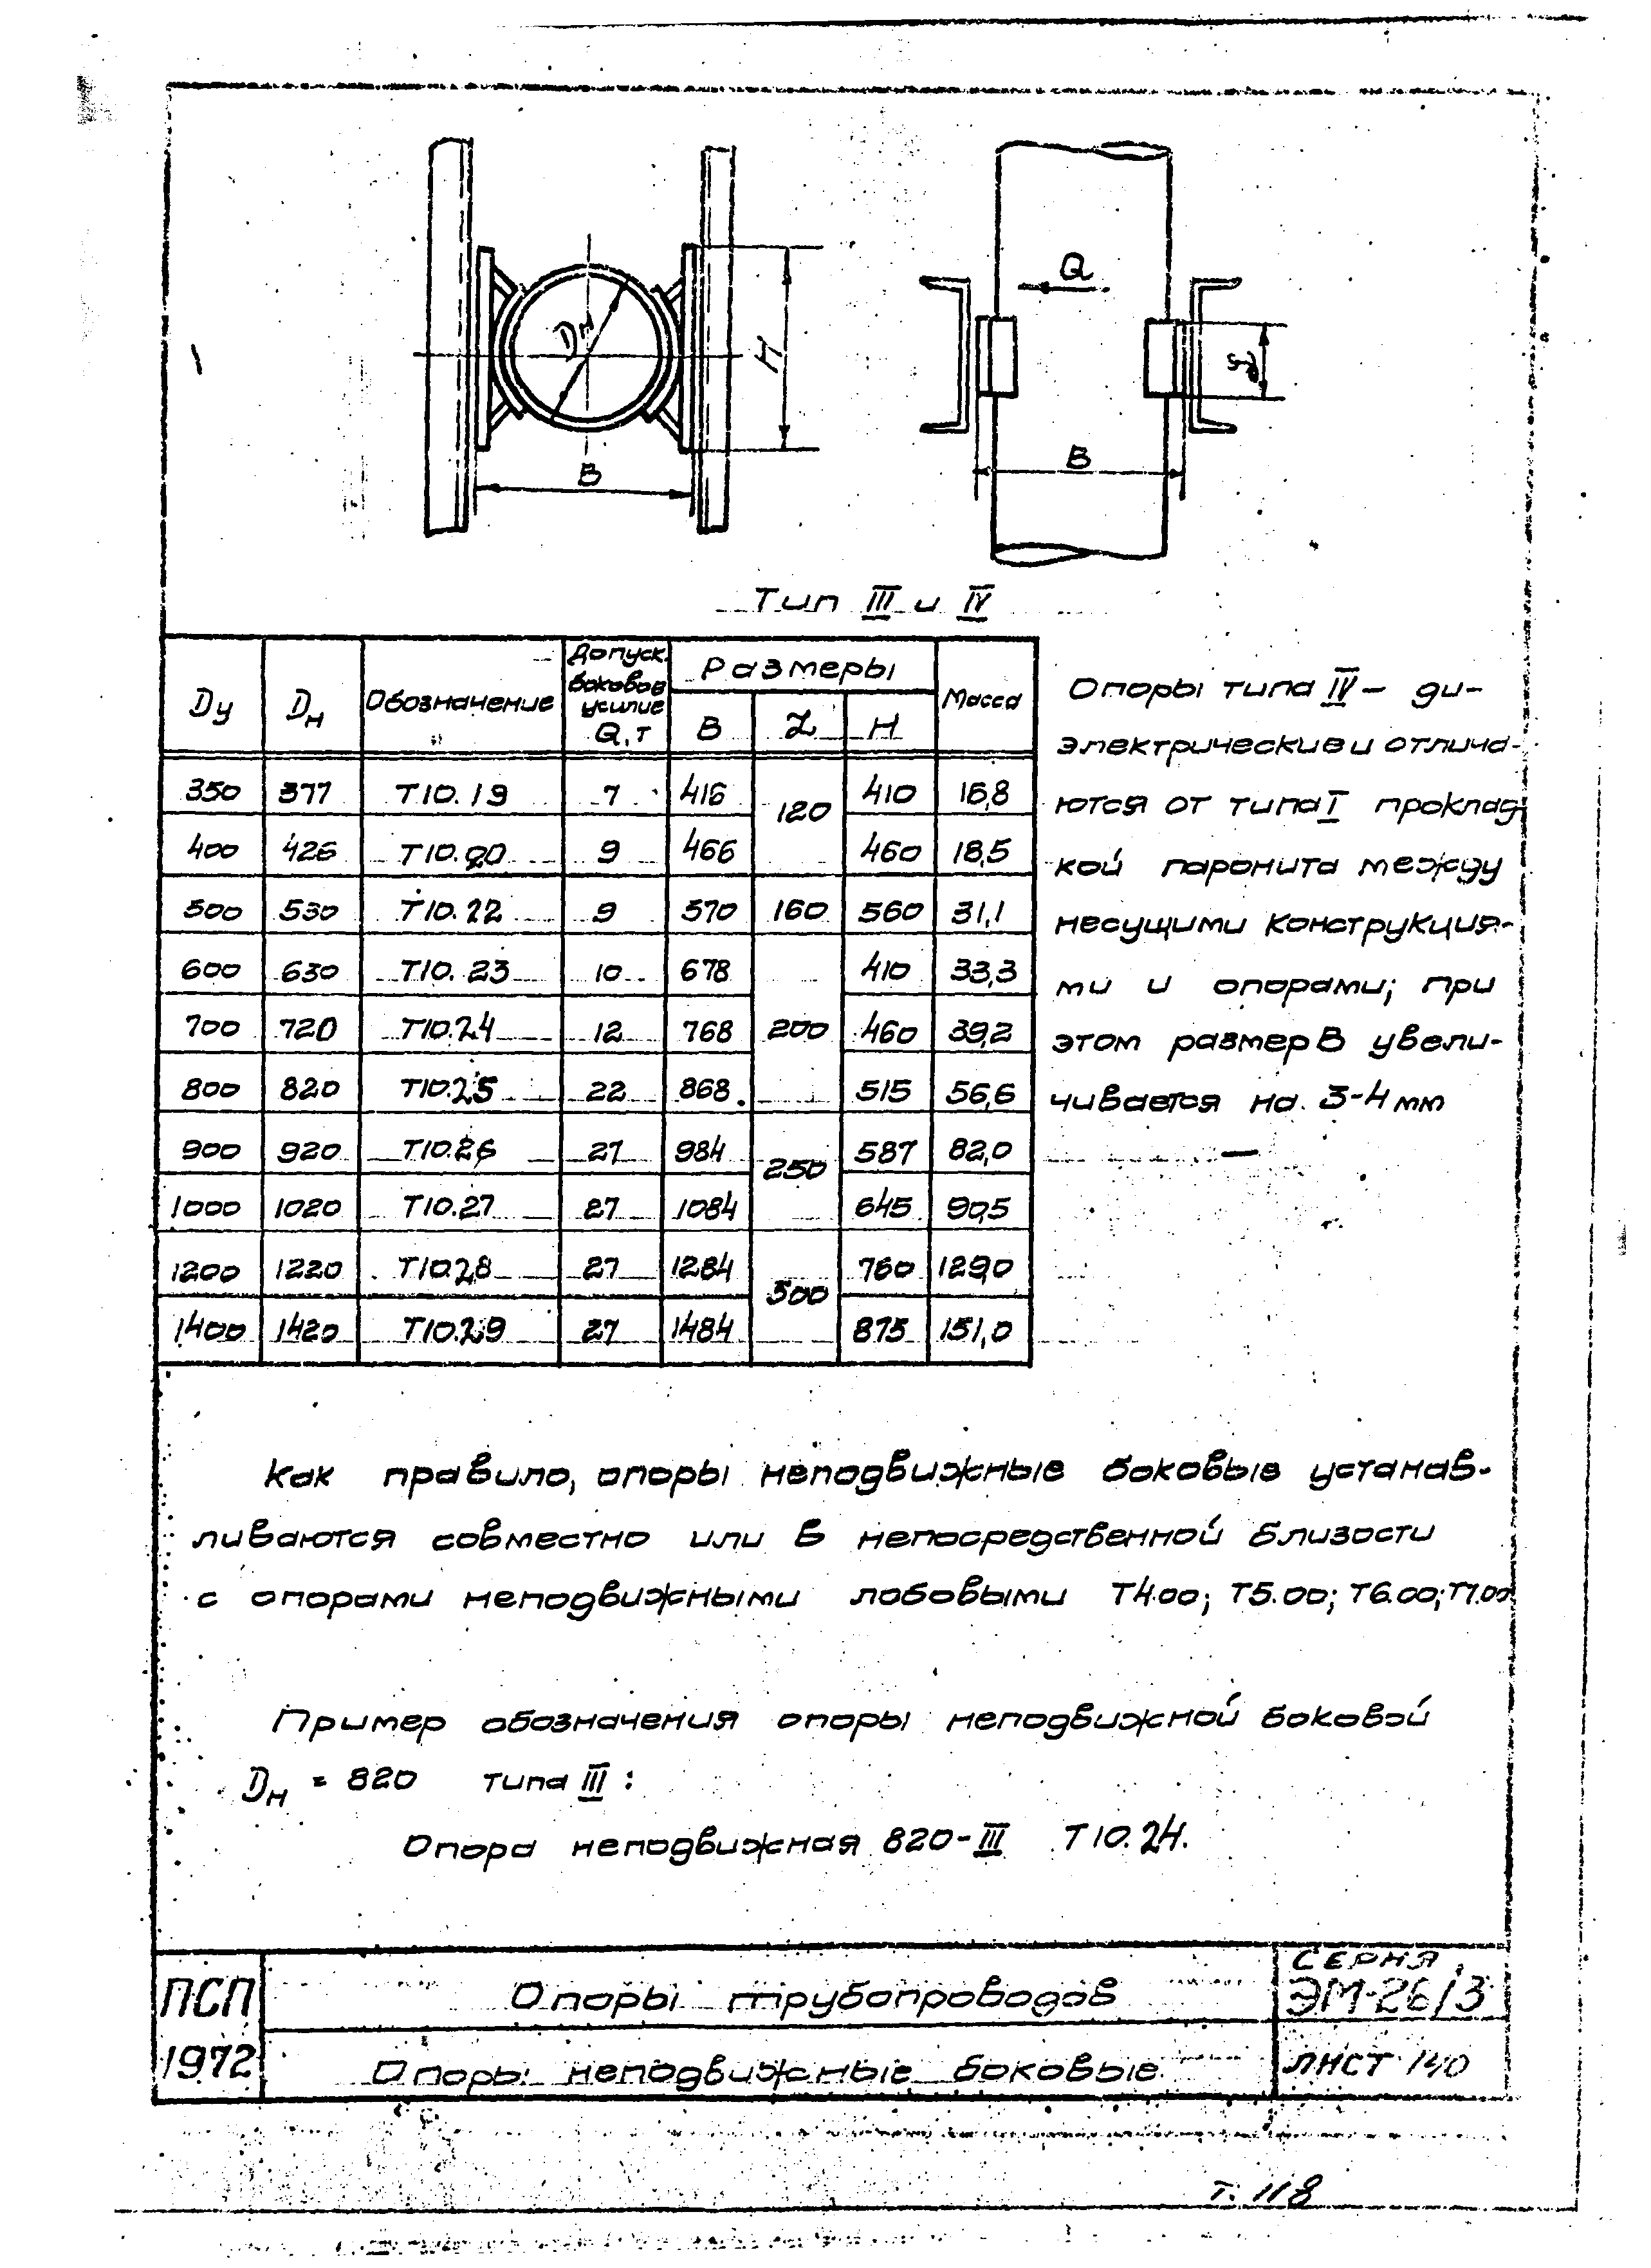 Dн
H
B
Q
L
B
Тип III и IV
Dу Dн Обозначение Допуск. боковое усилие Q, т Размеры Масса
B L H
350 377 Т10.19 7 416 120 410 16,8
400 426 Т10.20 9 466 460 18,5
500 530 Т10.22 9 570 160 560 31,1
600 630 Т10.23 10 678 410 33,3
700 720 Т10.24 12 768 200 460 39,2
800 820 Т10.25 22 868 515 56,6
900 920 Т10.26 27 984 250 587 82,0
1000 1020 Т10.27 27 1084 645 90,5
1200 1220 Т10.28 27 1284 500 760 129,0
1400 1420 Т10.29 27 1484 875 151,0
Опоры типа IV – ди-
электрические и отлича-
ются от типа I проклад-
кой паронита между
несущими конструкция-
ми и опорами; при
этом размер В увели-
чивается на 3-4 мм
Как правило, опоры неподвижные боковые устанав-
ливаются совместно или в непосредственной близости
с опорами неподвижными лобовыми Т4.00; Т5.00; Т6.00; Т7.00
Пример обозначения опоры неподвижной боковой
Dн = 820 типа III :
Опора неподвижная 820-III Т10.24.
ПСП
1972
Опоры трубопроводов
Опоры неподвижные боковые
СЕРИЯ
ЭМ-26/3
ЛИСТ 140
т. 118